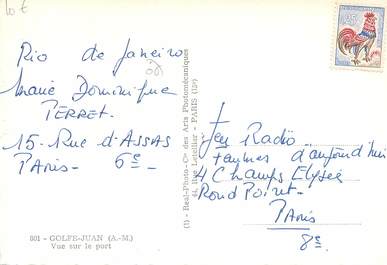 10 €
Rio de Janeiro
Marie Dominique
PERRET.
15. Rue d'ASSAS
PARIS- 6e-
801 - GOLFE-JUAN (A.-M.)
Vue sur le port
(1) - Real-Photo - Cie des Arts Photomécaniques
44, Rue Letellier - PARIS (15e)
Jeu Radio -
femmes d'aujourd'hui
4 Champs Elysée
Rond Point -
PARIS
8e.